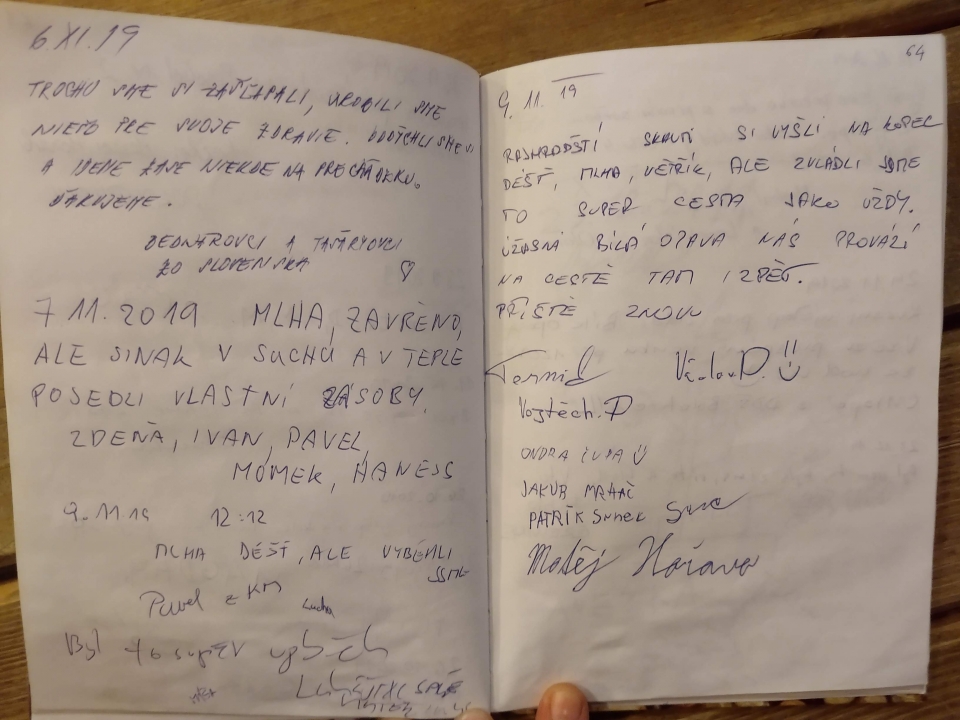 6.XI.19
TROCHU SME SI ZAŠĽAPALI, UROBILI SME
NIEČO PRE SVOJE ZDRAVIE. ODDÝCHLI SME SI
A IDEME ZASE NIEKDE NA PRECHÁDZKU.
ĎAKUJEME.
BEDNÁROVCI A
ZO SLOVENSKA
7.11.2019 MLHA, ZAVŘENO,
ALE JINAK V SUCHU A V TEPLE
POJEDLI VLASTNÍ ZÁSOBY.
ZDEŇA, IVAN, PAVEL,
MOMEK, HANESS
9.11 19 12:12
MLHA DÉŠŤ, ALE VYBĚHLI
JSME
Pavel z KM
Byl to super výběh
64
9.11.19
SKAUTI SI VYŠLI NA KOPEC
DÉŠŤ, MLHA, VĚTŘÍK, ALE ZVLÁDLI JSME
TO SUPER CESTA JAKO VŽDY.
ÚŽASNÁ BÍLÁ OPAVA NÁS PROVÁZÍ
NA CESTĚ TAM I ZPĚT.
PŘÍŠTĚ ZNOVU
Vojtěch.P
ONDRA
JAKUB
PATRIK
Matěj